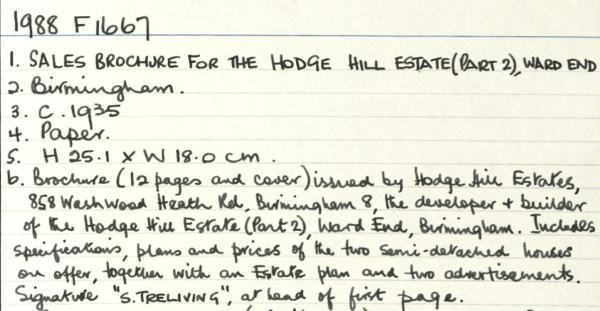 1988 F1667
1. SALES BROCHURE FOR THE HODGE HILL ESTATE (PART 2), WARD END
2. Birmingham.
3. C. 1935
4. Paper.
5. H 25.1 x W 18.0 cm.
6. Brochure (12 pages and cover) issued by Hodge Hill Estates,
858 Washwood Heath Rd, Birmingham 8, the developer + builder
of the Hodge Hill Estate (Part 2), Ward End, Birmingham. Includes
specifications, plans and prices of the two semi-detached houses
on offer, together with an Estate plan and two advertisements.
Signature "S. TRELIVING", at head of first page.